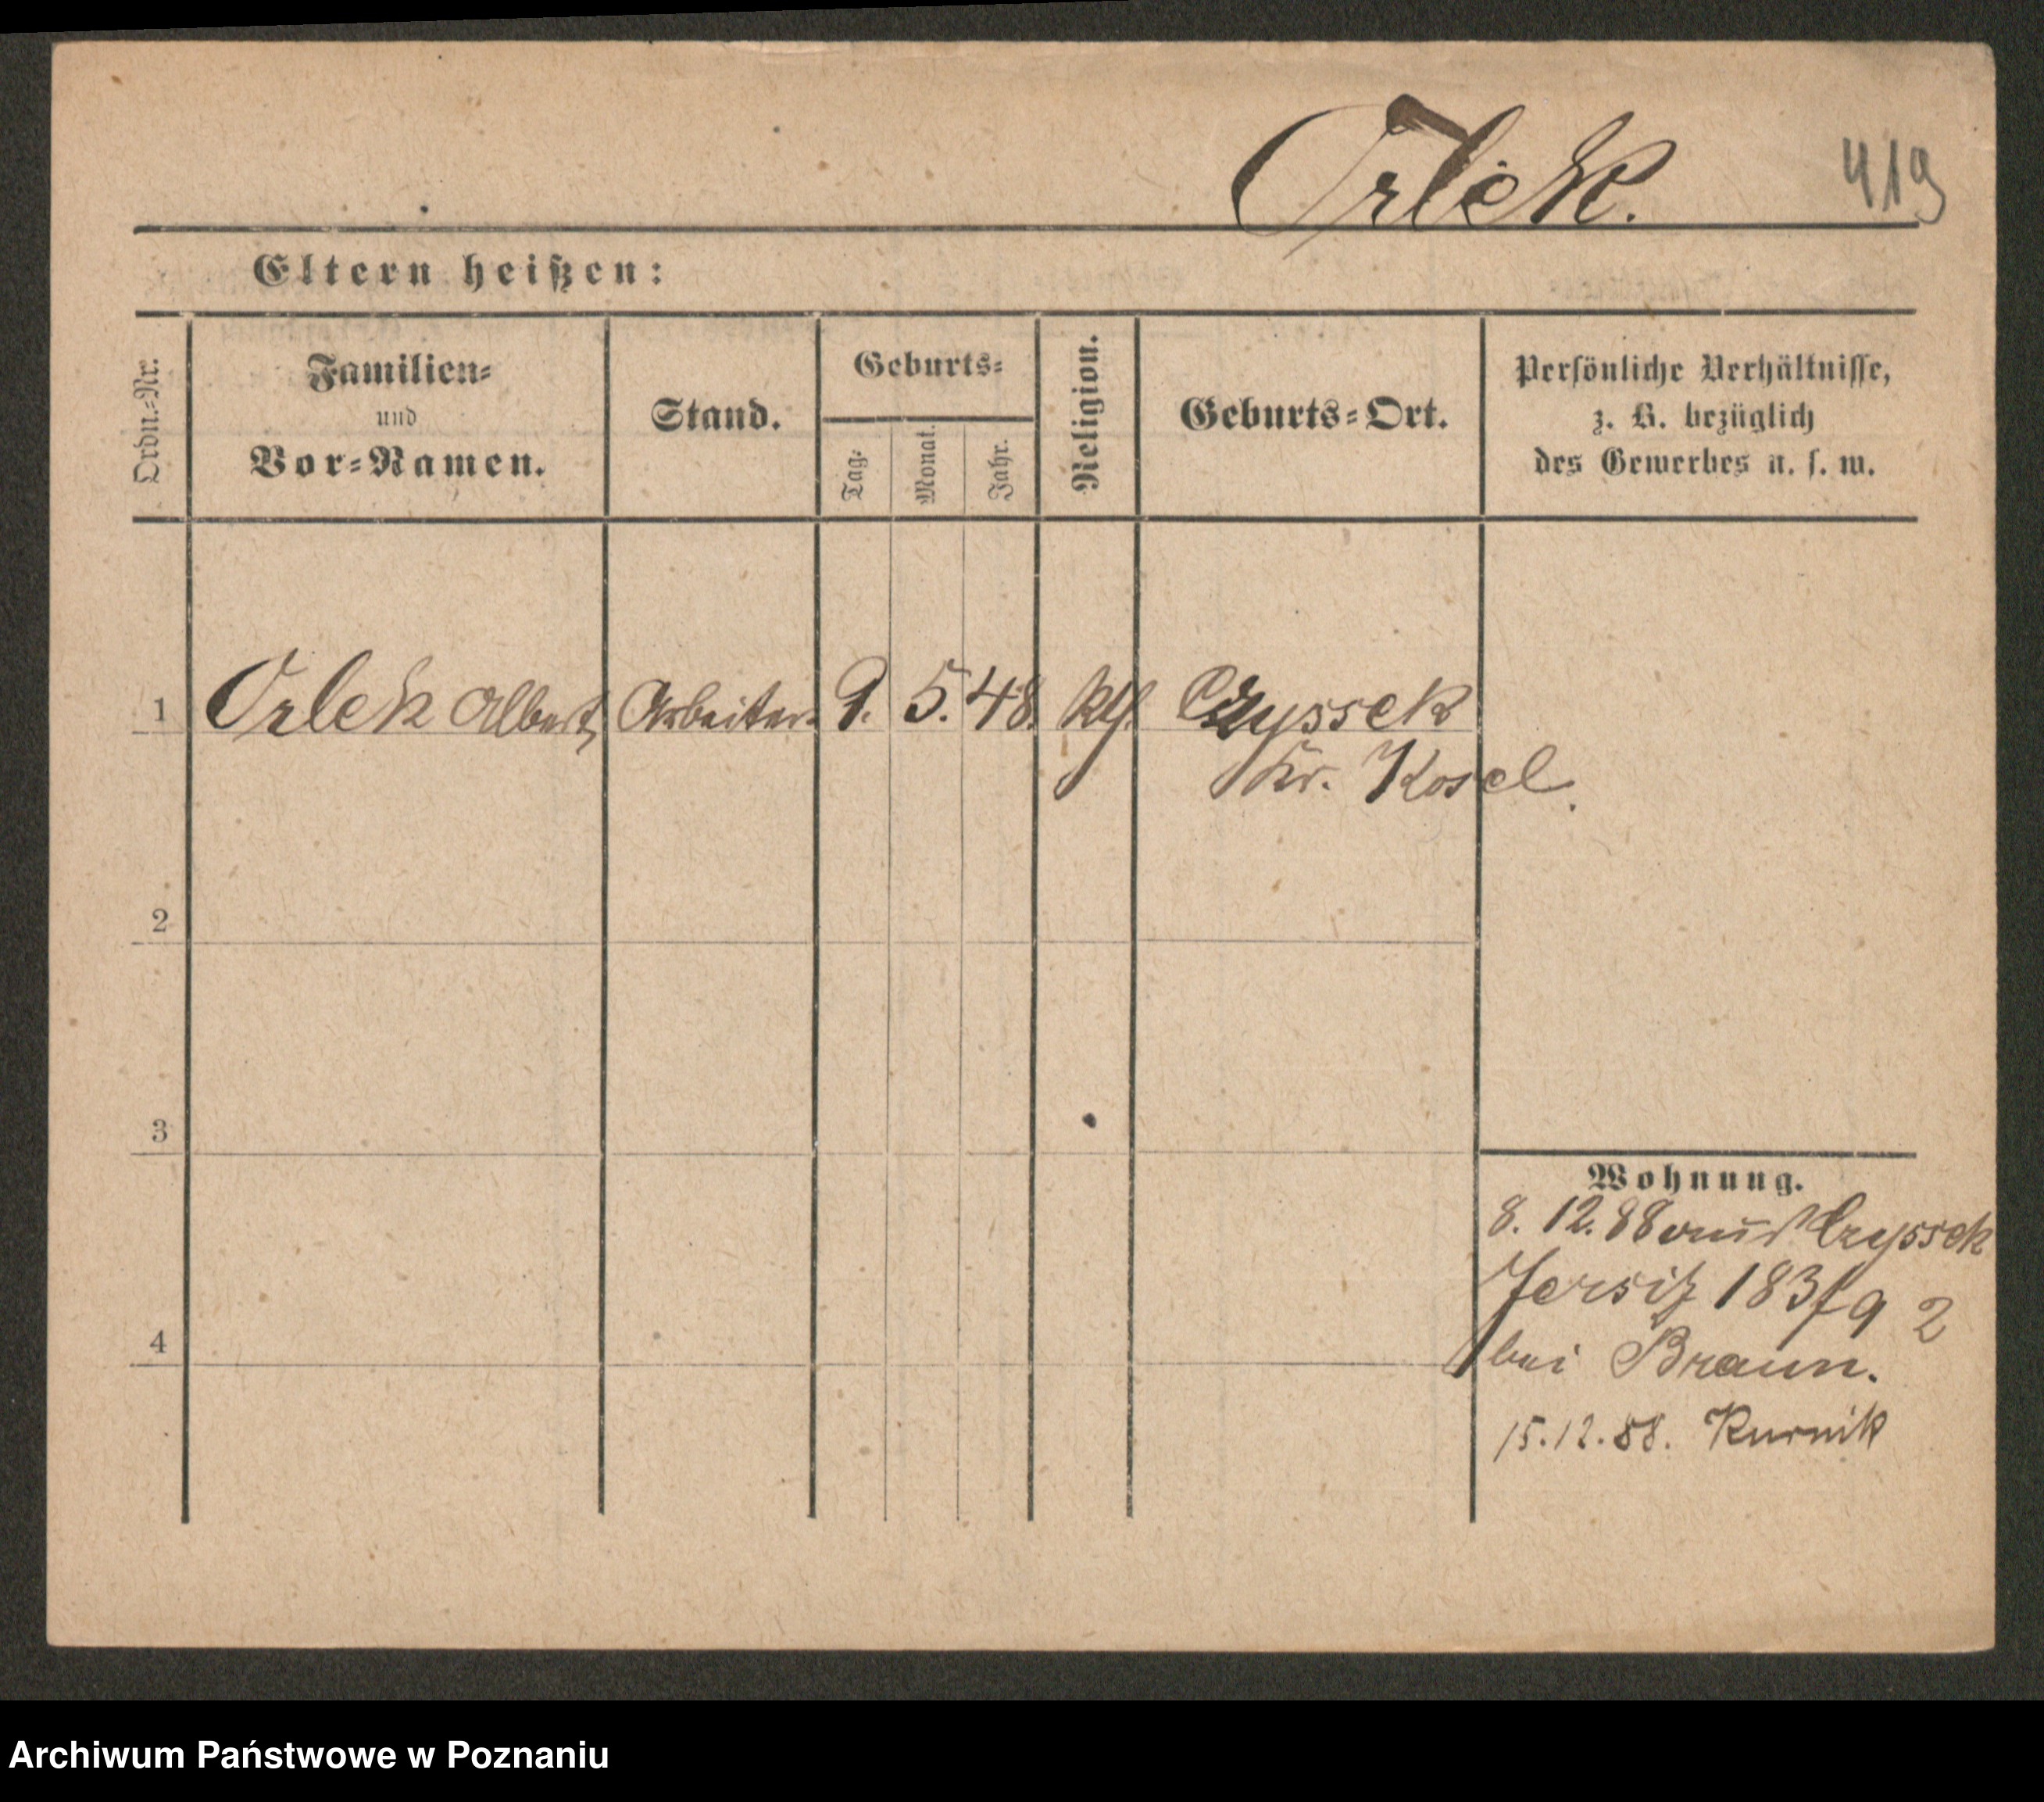 Orlek.
419
Eltern heißen:
Ordn.-Nr.
Familien-
und
Vor-Namen.
Stand.
Geburts-
Tag.
Monat.
Jahr.
Religion.
Geburts-Ort.
Persönliche Verhältnisse,
z. B. bezüglich
des Gewerbes u. s. w.
1 Orlek Albert Arbeiter 9. 5. 48. kth. Czyssek
Kr. Kosel.
2
3
4
Wohnung.
8. 12. 88 Czyssek
Jersitz 183/9 2
bei Braun.
15.12.88. Kurnik
Archiwum Państwowe w Poznaniu